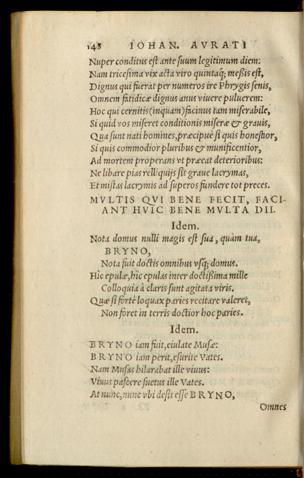 148 IOHAN. AVRATI
Nuper conditus est ante suum legitimum diem:
Nam tricesima vix acta viro quintaq́; meßis est,
Dignus qui fuerat per numeros ire Phrygis senis,
Omnem fatidicæ dignus anus viuere puluerem:
Hoc qui cernitis (inquam) facinus tam miserabile,
Si quid vos miseret conditionis miseræ & grauis,
Qua sunt nati homines, præcipuè si quis honestior,
Si quis commodior pluribus & munificentior,
Ad mortem properans vt præeat deterioribus:
Ne libare pias relliquijs sit graue lacrymas,
Et mistas lacrymis ad superos fundere tot preces.
MVLTIS QVI BENE FECIT, FACI-
ANT HVIC BENE MVLTA DII.
Idem.
Nota domus nulli magis est sua, quàm tua,
BRYNO,
Nota fuit doctis omnibus vsq; domus.
Hîc epulæ, hîc epulas inter doctißima mille
Colloquia à claris sunt agitata viris.
Quæ si fortè loquax paries recitare valeret,
Non foret in terris doctior hoc paries.
Idem.
BRYNO iam fuit, eiulate Musæ:
BRYNO iam perit, esurite Vates.
Nam Musas hilarabat ille viuus:
Viuus pascere suetus ille Vates.
At nunc, nunc vbi desit esse BRYNO,
Omnes